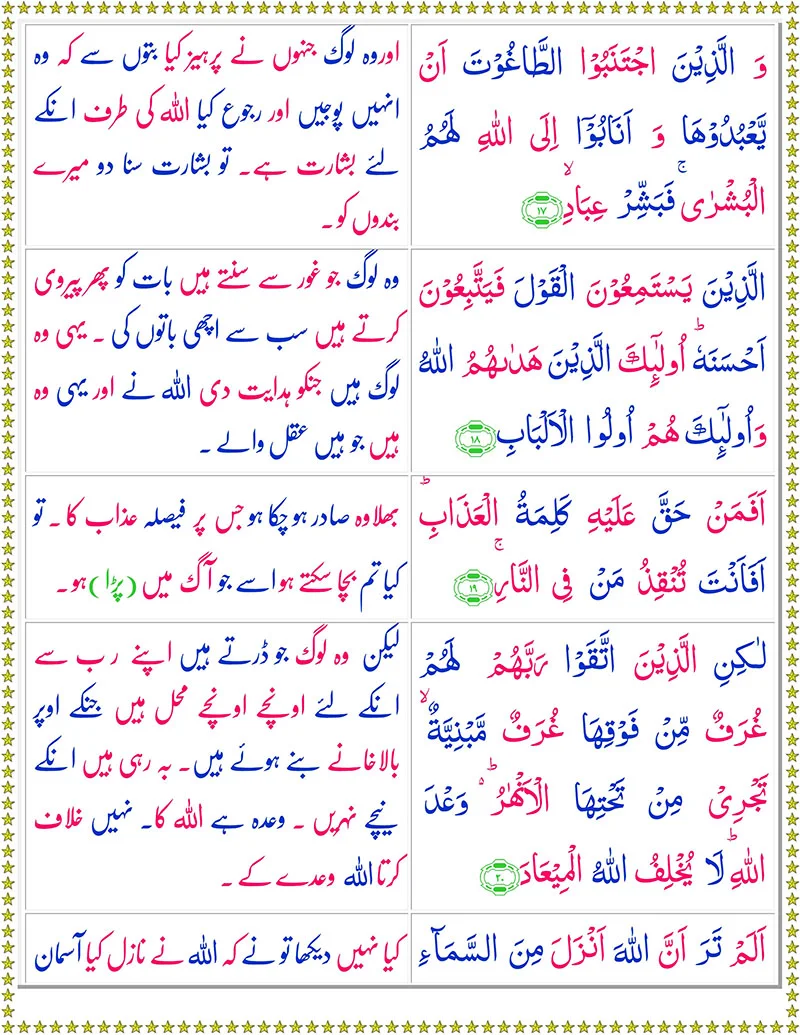 وَ الَّذِيْنَ اجْتَنَبُوا الطَّاغُوْتَ اَنْ
يَّعْبُدُوْهَا وَ اَنَابُوْۤا اِلَى اللّٰهِ لَهُمُ
الْبُشْرٰى ۚ فَبَشِّرْ عِبَادِ ۙ ۱۷
اوروہ لوگ جنہوں نے پرہیز کیا بتوں سے کہ وہ
انہیں پوجیں اور رجوع کیا اللہ کی طرف انکے
لئے بشارت ہے۔ تو بشارت سنا دو میرے
بندوں کو۔
الَّذِيْنَ يَسْتَمِعُوْنَ الْقَوْلَ فَيَتَّبِعُوْنَ
اَحْسَنَهٗ ؕ اُولٰٓئِكَ الَّذِيْنَ هَدٰىهُمُ اللّٰهُ
وَاُولٰٓئِكَ هُمْ اُولُوا الْاَلْبَابِ ۱۸
وہ لوگ جو غور سے سنتے ہیں بات کو پھر پیروی
کرتے ہیں سب سے اچھی باتوں کی ۔ یہی وہ
لوگ ہیں جنکو ہدایت دی اللہ نے اور یہی وہ
ہیں جو ہیں عقل والے ۔
اَفَمَنْ حَقَّ عَلَيْهِ كَلِمَةُ الْعَذَابِ ؕ
اَفَاَنْتَ تُنْقِذُ مَنْ فِى النَّارِ ۚ ۱۹
بھلاوہ صادر ہو چکا ہو جس پر فیصلہ عذاب کا ۔ تو
کیا تم بچا سکتے ہو اسے جو آگ میں (پڑا) ہو۔
لٰكِنِ الَّذِيْنَ اتَّقَوْا رَبَّهُمْ لَهُمْ
غُرَفٌ مِّنْ فَوْقِهَا غُرَفٌ مَّبْنِيَّةٌ ۙ
تَجْرِىْ مِنْ تَحْتِهَا الْاَنْهٰرُ ؕ وَعْدَ
اللّٰهِ ؕ لَا يُخْلِفُ اللّٰهُ الْمِيْعَادَ ۲۰
لیکن وہ لوگ جو ڈرتے ہیں اپنے رب سے
انکے لئے اونچے اونچے محل ہیں جنکے اوپر
بالاخانے بنے ہوئے ہیں۔ بہ رہی ہیں انکے
نیچے نہریں ۔ وعدہ ہے اللہ کا۔ نہیں خلاف
کرتا اللہ وعدے کے ۔
اَلَمْ تَرَ اَنَّ اللّٰهَ اَنْزَلَ مِنَ السَّمَآءِ
کیا نہیں دیکھا تو نے کہ اللہ نے نازل کیا آسمان